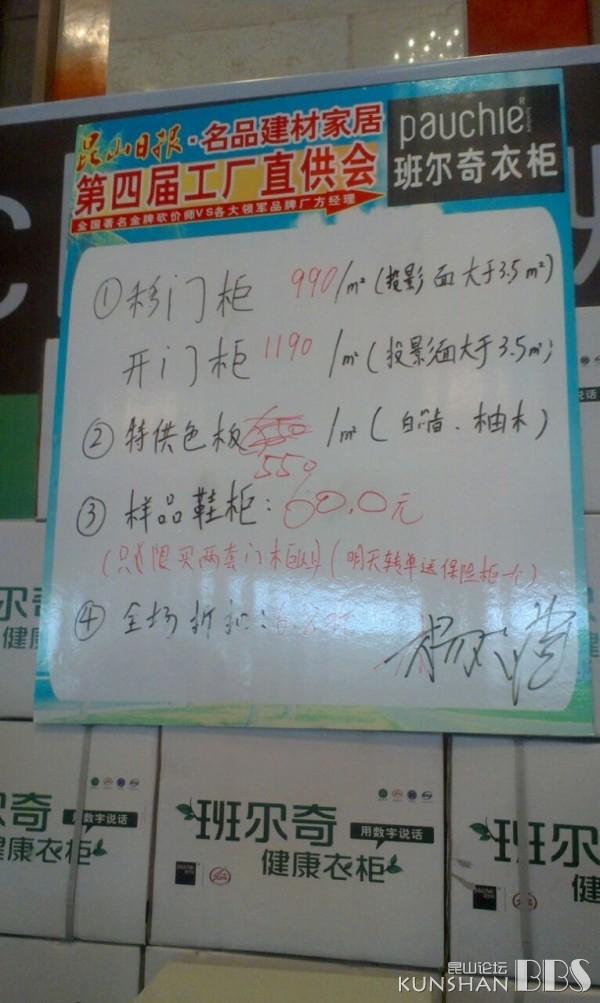 昆山日报·名品建材家居
第四届工厂直供会
全国著名金牌砍价师VS各大领军品牌厂方经理
pauchie
班尔奇衣柜
①移门柜 990/m²(投影面大于3.5m²)
开门柜 1190/m²(投影面大于3.5m²)
②特供色板 /m²( 柚木)
550
③样品鞋柜:600.0元
(只限买两套门柜以上)(明天转单送保险柜一个)
④全场折扣:6.8折
班尔奇
健康衣柜
班尔奇
用数字说话
健康衣柜
pauchie
班尔奇
用数字说话
健康衣柜
pauchie
班尔
健康
昆山论坛
KUNSHAN BBS